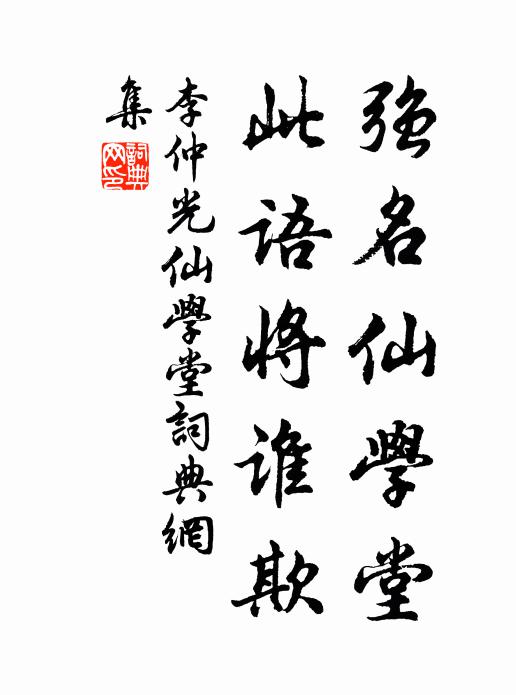 強名仙學堂
此語將誰欺
李仲光仙學堂詞典網
集
詞典网印